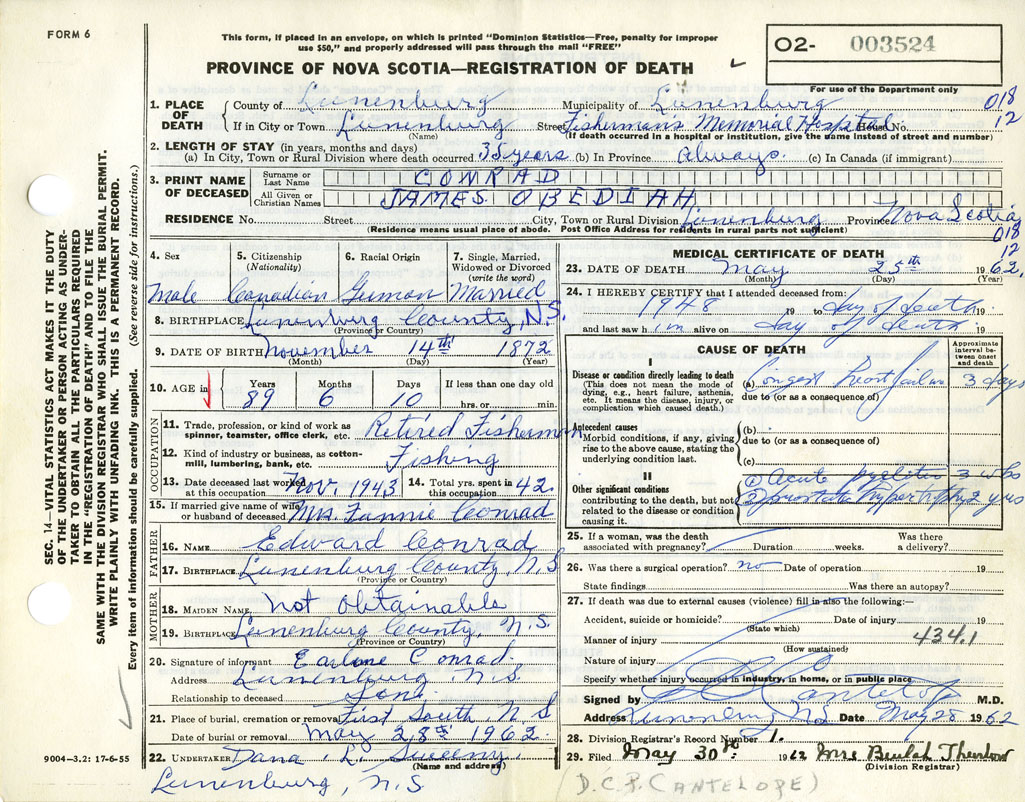 FORM 6
This form, if placed in an envelope, on which is printed "Dominion Statistics—Free, penalty for improper
use $50," and properly addressed will pass through the mail "FREE"
PROVINCE OF NOVA SCOTIA—REGISTRATION OF DEATH
O2- 003524
For use of the Department only
SEC. 14—VITAL STATISTICS ACT MAKES IT THE DUTY
OF THE UNDERTAKER OR PERSON ACTING AS UNDER-
TAKER TO OBTAIN ALL THE PARTICULARS REQUIRED
IN THE "REGISTRATION OF DEATH" AND TO FILE THE
SAME WITH THE DIVISION REGISTRAR WHO SHALL ISSUE THE BURIAL PERMIT.
WRITE PLAINLY WITH UNFADING INK. THIS IS A PERMANENT RECORD.
Every item of information should be carefully supplied. (See reverse side for instructions.)
1. PLACE OF DEATH
County of Lunenburg Municipality of Lunenburg 018
If in City or Town Lunenburg Street Fisherman's Memorial Hospital House No. 12
(Name) (If death occurred in a hospital or institution, give the name instead of street and number)
2. LENGTH OF STAY (in years, months and days)
(a) In City, Town or Rural Division where death occurred 35 years (b) In Province Always. (c) In Canada (if immigrant)
3. PRINT NAME OF DECEASED
Surname or Last Name CONRAD
All Given or Christian Names JAMES OBEDIAH
RESIDENCE No. Street City, Town or Rural Division Lunenburg Province Nova Scotia
(Residence means usual place of abode. Post Office Address for residents in rural parts not sufficient)
018
12
4. Sex
Male
5. Citizenship
(Nationality)
Canadian
6. Racial Origin
German
7. Single, Married,
Widowed or Divorced
(write the word)
Married
8. BIRTHPLACE Lunenburg County, N.S.
(Province or Country)
9. DATE OF BIRTH November 14th 1872
(Month) (Day) (Year)
10. AGE in
Years Months Days If less than one day old
89 6 10 hrs. or min.
OCCUPATION
11. Trade, profession, or kind of work as
spinner, teamster, office clerk, etc. Retired Fisherman
12. Kind of industry or business, as cotton-
mill, lumbering, bank, etc. Fishing
13. Date deceased last worked
at this occupation Nov. 1943
14. Total yrs. spent in
this occupation 42.
15. If married give name of wife
or husband of deceased Mrs Fannie Conrad
FATHER
16. NAME Edward Conrad
17. BIRTHPLACE Lunenburg County, N.S
(Province or Country)
MOTHER
18. MAIDEN NAME Not Obtainable
19. BIRTHPLACE Lunenburg County, N.S.
(Province or Country)
20. Signature of informant Earlane Conrad.
Address Lunenburg N.S.
Relationship to deceased
21. Place of burial, cremation or removal First South N.S
Date of burial or removal May 28th 1962
22. UNDERTAKER Dana L. Sweeny
(Name and address)
Lunenburg, N.S
9004-3.2: 17-6-55
MEDICAL CERTIFICATE OF DEATH
23. DATE OF DEATH May 25th 1962,
(Month) (Day) (Year)
24. I HEREBY CERTIFY that I attended deceased from:
1948 19 to day of death 19
and last saw him alive on day of death 19
CAUSE OF DEATH
Approximate interval between onset and death
I
Disease or condition directly leading to death
(This does not mean the mode of
dying, e.g., heart failure, asthenia,
etc. It means the disease, injury, or
complication which caused death.)
(a) Congest heart failure 3 days
due to (or as a consequence of)
Antecedent causes
Morbid conditions, if any, giving
rise to the above cause, stating the
underlying condition last.
(b)
due to (or as a consequence of)
(c)
II
Other significant conditions
contributing to the death, but not
related to the disease or condition
causing it.
(1) Acute pyelitis 3 wks
(2) prostate hypertrophy 2 yrs
25. If a woman, was the death
associated with pregnancy? Duration weeks. Was there
a delivery?
26. Was there a surgical operation? no Date of operation 19
State findings Was there an autopsy?
27. If death was due to external causes (violence) fill in also the following:—
Accident, suicide or homicide? Date of injury 19
(State which)
Manner of injury 434.1
(How sustained)
Nature of injury
Specify whether injury occurred in industry, in home, or in public place
Signed by Cantelope M.D.
Address N.S Date May 28 1962
28. Division Registrar's Record Number 1.
29. Filed May 30th 1962 Mrs Beulah
(Division Registrar)
(D.C.P. CANTELOPE)